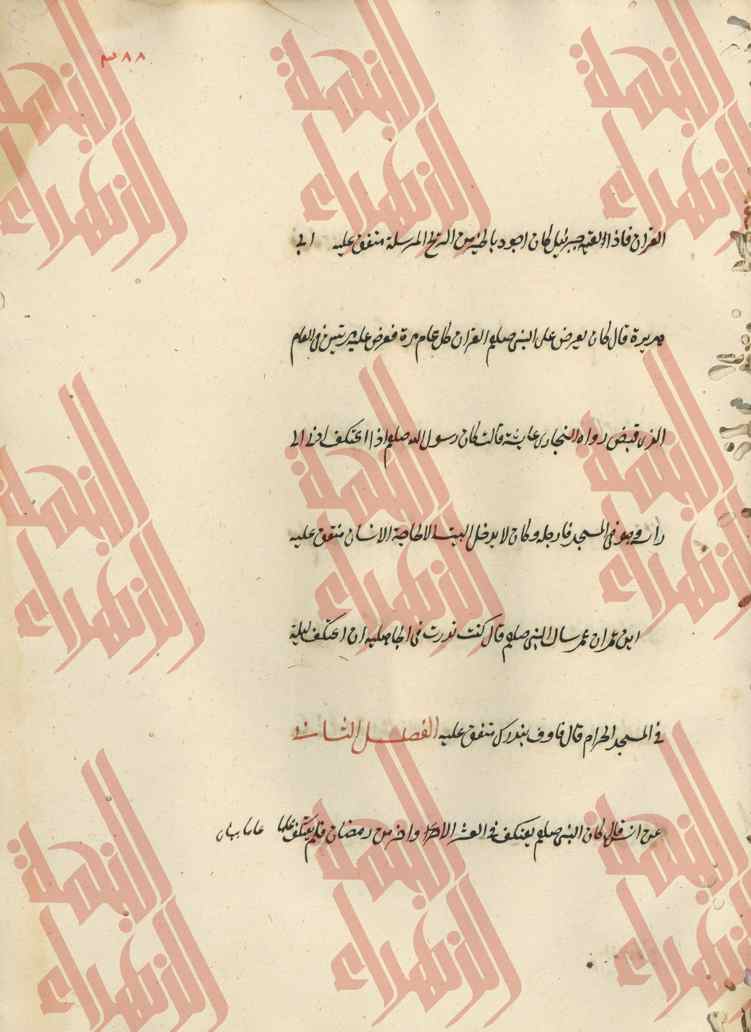 ٣٨٨
القران فاذا لقيه جبرئيل كان اجود بالخير من الريح المرسلة متفق عليه ابى
هريرة قال كان يعرض على النبى صلعم القران كل عام مرة فعرض عليه مرتين فى العام
الذى قبض رواه البخارى عايشة قالت كان رسول الله صلعم اذا اعتكف ادنى الى
راسه وهو فى المسجد فارجله وكان لا يدخل البيت الا لحاجة الانسان متفق عليه
ابن عمر ان عمر سال النبى صلعم قال كنت نذرت فى الجاهلية ان اعتكف ليلة
فى المسجد الحرام قال فاوف بنذرك متفق عليه الفصل الثانى
عن انس قال كان النبى صلعم يعتكف فى العشر الاواخر من رمضان فلم يعتكف عاما